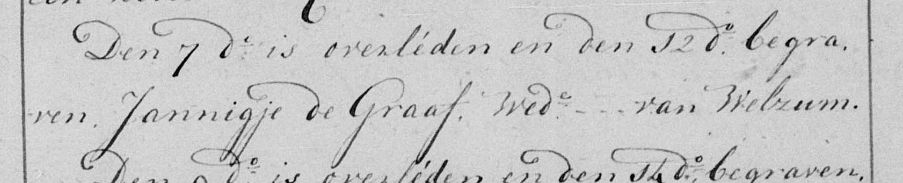 Den 7 d.º is overléden en den 12 d.º begra.
ven. Jannigje de Graaf. Wed.e --- van Welzum.
Den 9 d.º is overléden en den 14 d.º begraven.